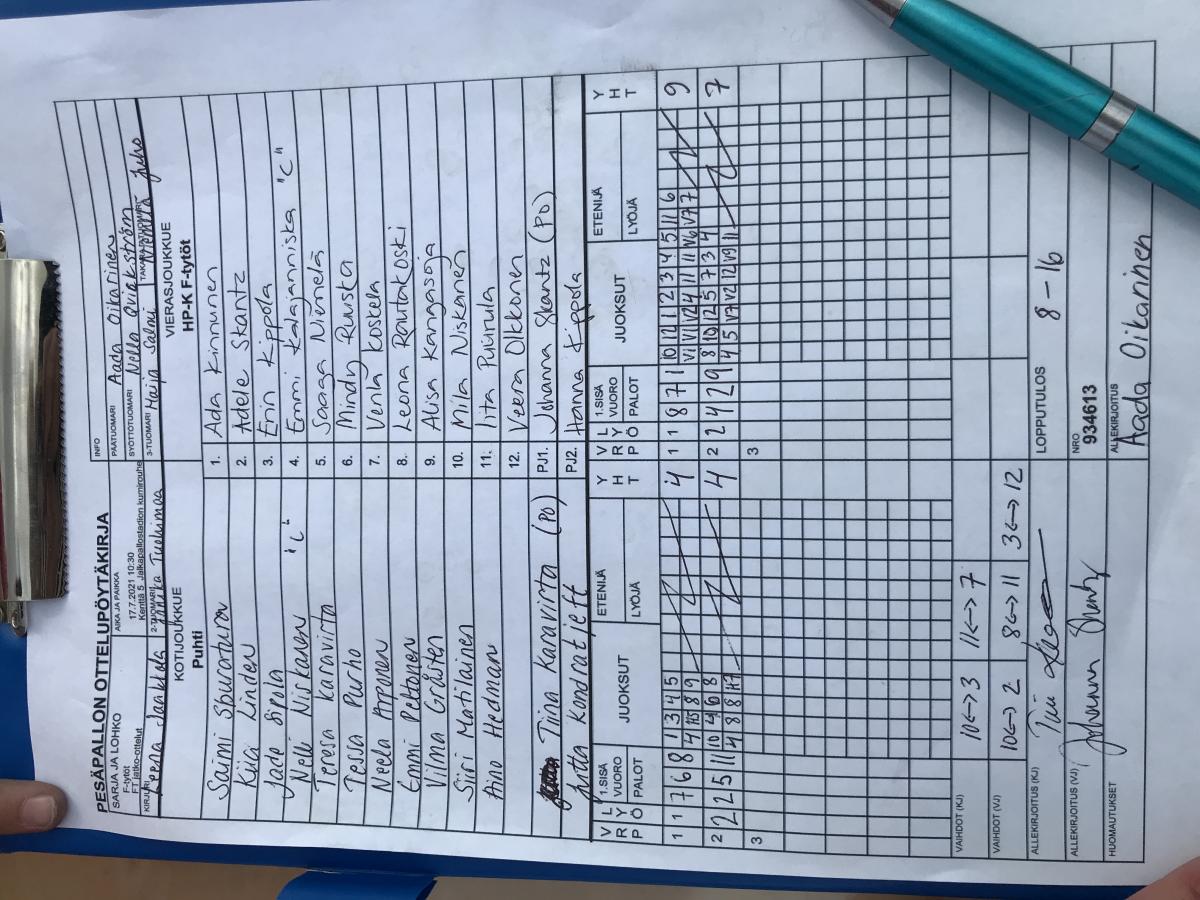 PESÄPALLON OTTELUPÖYTÄKIRJA
SARJA JA LOHKO
F-tytöt
FT jatko-ottelut
AIKA JA PAIKKA
17.7.2021 10:30
Kenttä 5 Jalkapallostadion kumirouhe
INFO
PÄÄTUOMARI Aada Oikarinen
SYÖTTÖTUOMARI Nella Qvickström
KIRJURI Leena Jaakkola
2-TUOMARI Annika Tuohimaa
3-TUOMARI Maija Salmi
TAKARAJATUOMARIT Niemelä Juho
KOTIJOUKKUE
Puhti
VIERASJOUKKUE
HP-K F-tytöt
Saimi 1. Ada Kinnunen
Kiia Linden 2. Adele Skantz
Jade Sipola 3. Erin Kippola
Nelli Niskanen "L" 4. Emmi Kalajanniska "C"
Teresa Karavirta 5. Saaga Niemelä
Tessa Purho 6. Mindy Ruuska
Neela Arponen 7. Venla Koskela
Emmi Peltonen 8. Leona Rautakoski
Vilma Gråsten 9. Alisa Kangasoja
Siiri Matilainen 10. Mila Niskanen
Aino Hedman 11. Iita Puurula
12. Veera Olkkonen
Tiina Karavirta (PO) PJ1. Johanna Skantz (PO)
Jutta Kondratjeff PJ2. Hanna Kippola
V R L Y P Ö 1.SISÄ VUORO PALOT JUOKSUT ETENIJÄ LYÖJÄ Y H T
V R L Y P Ö 1.SISÄ VUORO PALOT JUOKSUT ETENIJÄ LYÖJÄ Y H T
1 1 7 6 8 1 3 4 5 4
1 1 8 7 1 10 12 1 2 3 4 5 11 6 9
2 2 2 5 11 10 4 6 8 4
2 2 4 2 9 8 10 12 5 7 3 4 7
3
3
VAIHDOT (KJ) 10<->3 11<->7
VAIHDOT (VJ) 10<->2 8<->11 3<->12
ALLEKIRJOITUS (KJ)
ALLEKIRJOITUS (VJ)
HUOMAUTUKSET
LOPPUTULOS 8 - 16
NRO
934613
ALLEKIRJOITUS
Aada Oikarinen